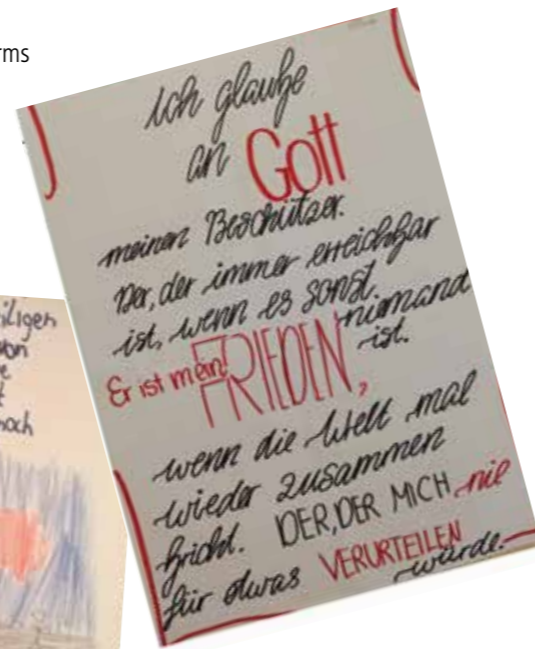 rms
Ich glaube
an Gott
meinen Beschützer.
Der, der immer erreichbar
ist, wenn es sonst
niemand
ist.
Er ist mein FRIEDEN,
wenn die Welt mal
wieder zusammen
bricht. DER, DER MICH nie
für etwas VERURTEILEN
würde.
iligen
von
noch